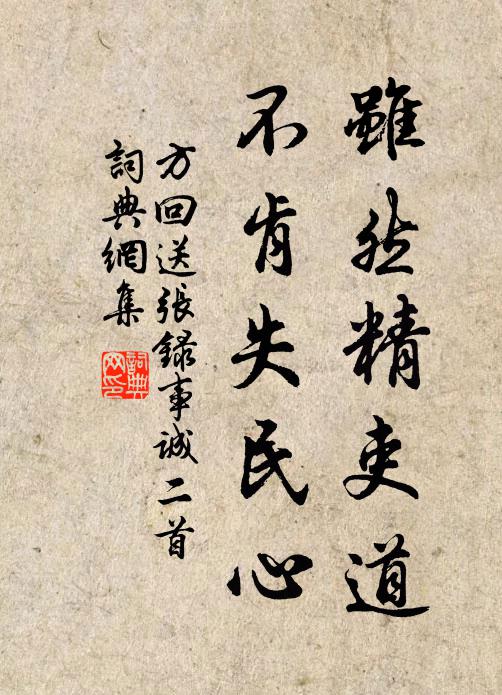 雖然精吏道
不肯失民心
方回送張錄事誠二首
詞典網集
詞典
网印